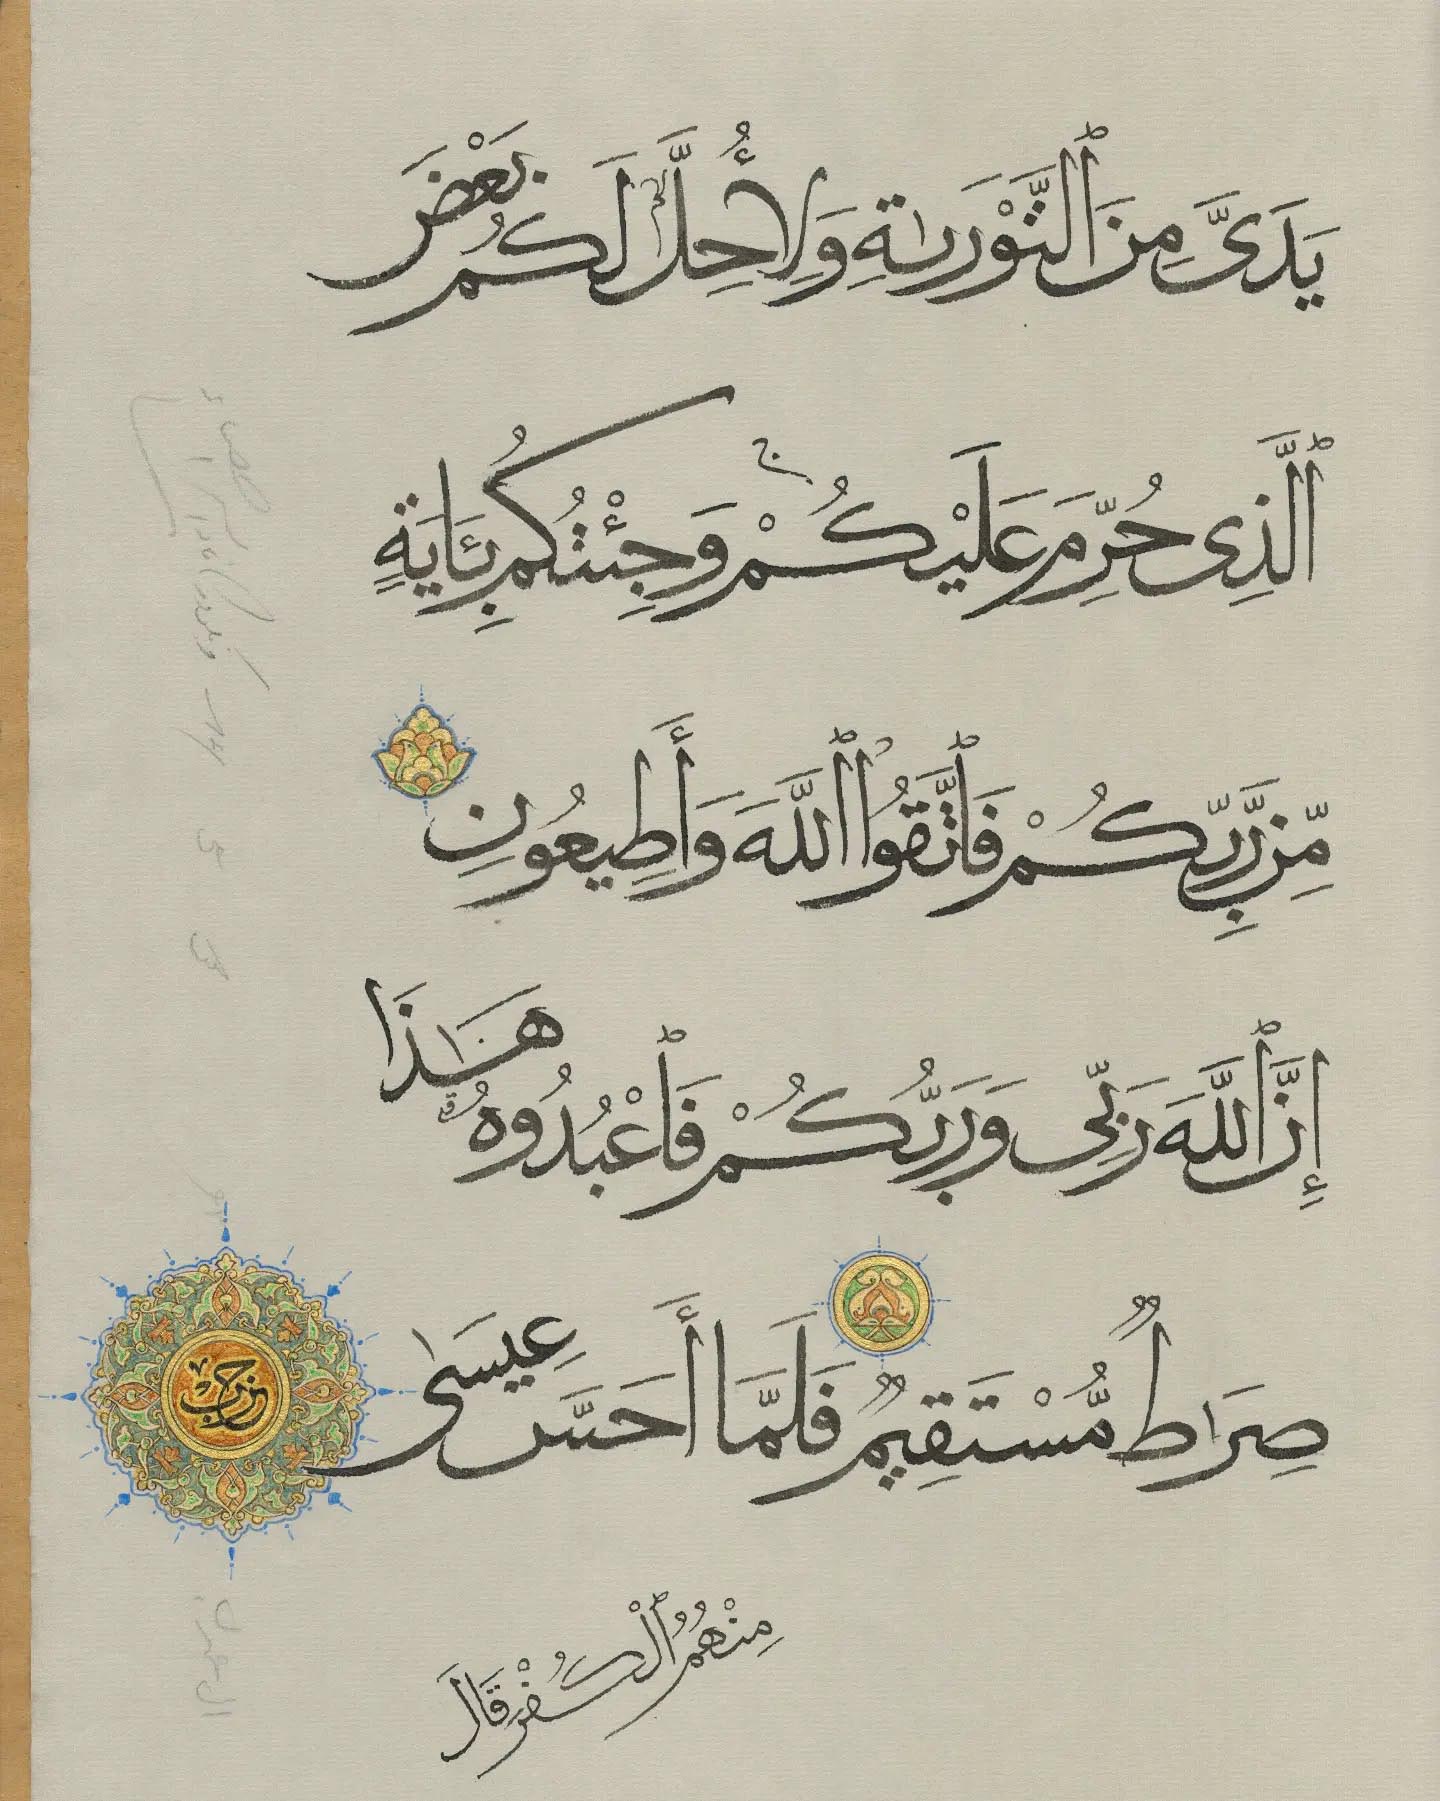 يَدَىَّ مِنَ ٱلتَّوْرَىٰةِ وَلِأُحِلَّ لَكُم بَعْضَ
ٱلَّذِى حُرِّمَ عَلَيْكُمْ ۚ وَجِئْتُكُم بِـَٔايَةٍ
مِّن رَّبِّكُمْ فَٱتَّقُوا۟ ٱللَّهَ وَأَطِيعُونِ
إِنَّ ٱللَّهَ رَبِّى وَرَبُّكُمْ فَٱعْبُدُوهُ ۗ هَـٰذَا
صِرَٰطٌ مُّسْتَقِيمٌ فَلَمَّا أَحَسَّ عِيسَىٰ
حزب
مِنْهُمُ ٱلْكُفْرَ قَالَ